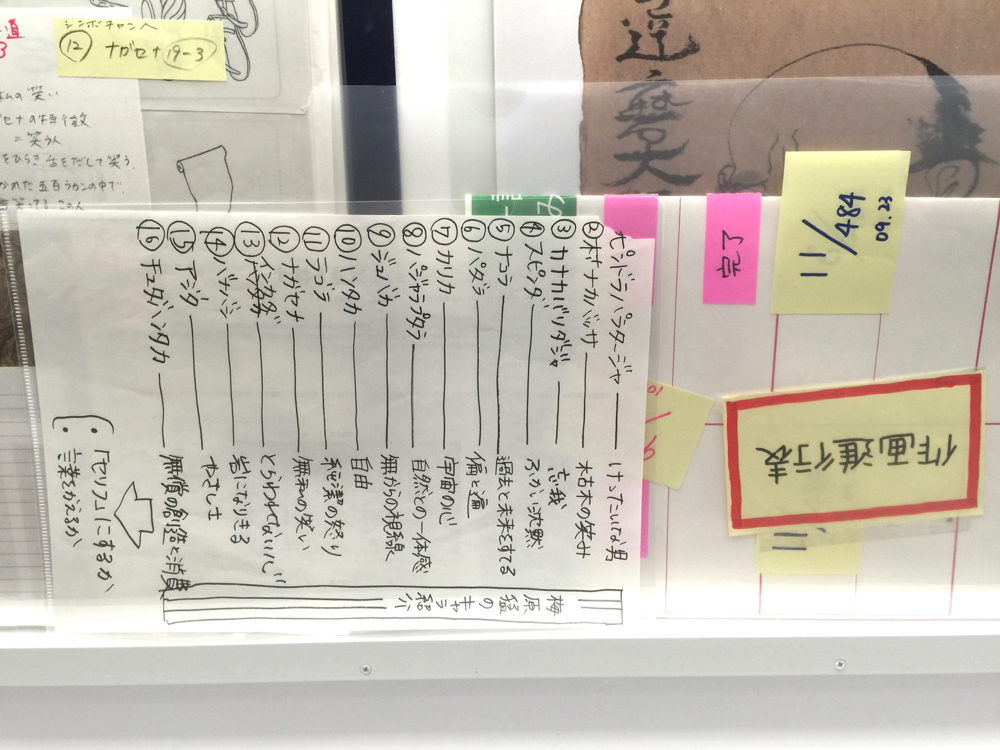 シンボチャンへ
⑫ ナガセナ 19-3
ムの笑い
セナの特徴
＝笑う人
をひらき舌をだして笑う。
かれた五百ラカンの中で、
達磨大
11/484
09.23
完了
作画進行表
梅原猛のキャラ紹介
ピンドラバラダージャ ― けったいな男
② カナカバッサ ― 木古木の笑み
③ カナカバリダジャ ― 忘我
④ スピンダ ― ふかい沈黙
⑤ ナコラ ― 過去と未来をすてる
⑥ バダラ ― 偏と遍
⑦ カリカ ― 宇宙の心
⑧ バジャラプタラ ― 自然との一体感
⑨ ジュバカ ― 無からの視線
⑩ ハンタカ ― 自由
⑪ ラゴラ ― 純潔の怒り
⑫ ナガセナ ― 無和の笑い
⑬ インカダ ― とらわれてない心
⑭ バナバシ ― 岩になりきる
⑮ アジタ ― やさしさ
⑯ チュダハンタカ ― 無償の創造と消費
・「セリフ」にするか
・言葉をかえるか